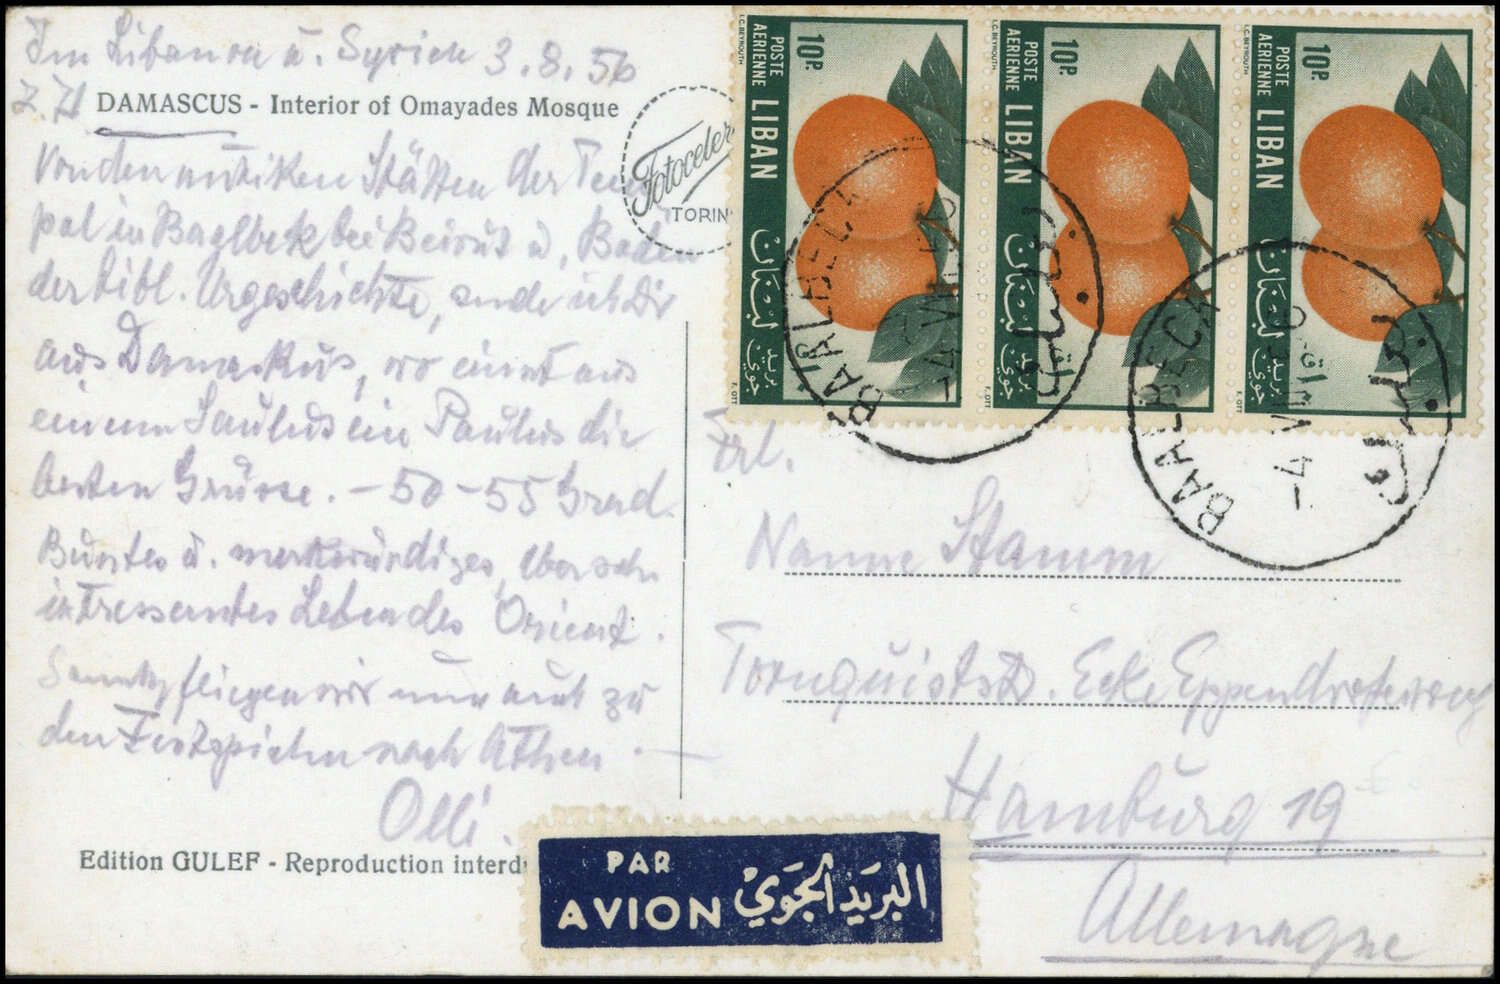 Im Libanon u. Syrien 3.8.56
z. Zt DAMASCUS - Interior of Omayades Mosque
Von den antiken Stätten der Tem
pel in Baalbek bei Beirut u. Boden
der bibl. Urgeschichte, sende ich Dir
aus Damaskus, wo einst aus
einem Saulus ein Paulus die
besten Grüsse. - 50-55 Grad.
Buntes u. merkwürdiges, aber sehr
interessantes Leben des Orient.
fliegen wir nun mit zu
den Festspielen nach Athen. —
Olli.
Edition GULEF - Reproduction interd
Fotoceler
TORIN
10P.
POSTE AERIENNE
LIBAN
لبنان
بريد جوي
I.C. BEYROUTH
F. OTT
10P.
POSTE AERIENNE
LIBAN
لبنان
I.C. BEYROUTH
F. OTT
10P.
POSTE AERIENNE
LIBAN
لبنان
بريد جوي
I.C. BEYROUTH
F. OTT
BAALBECK
-4 VIII 56
BAALBECK
-4 VIII
Frl.
Nanne Stamm
Tornquiststr. Ecke Eppendorferweg
Hamburg 19
Allemagne
PAR
AVION
البريد الجوي